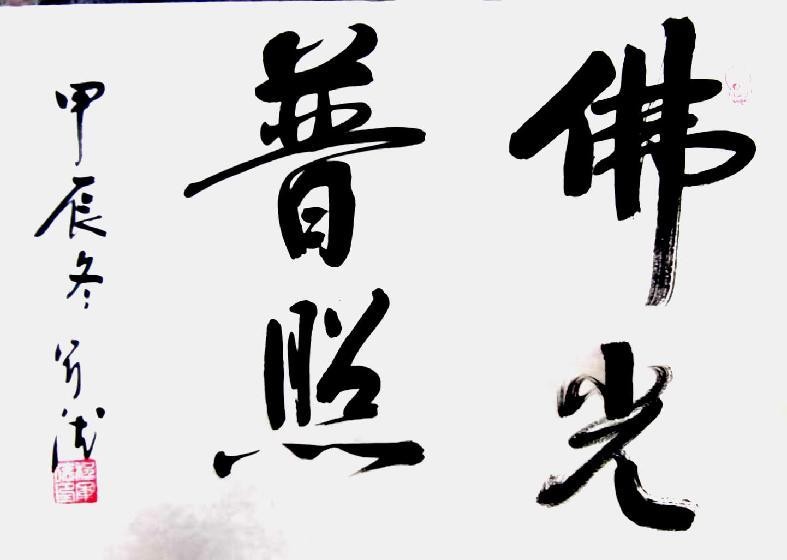 佛光
普照
甲辰冬